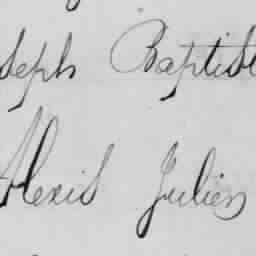 seph Baptist
Alexis Julien